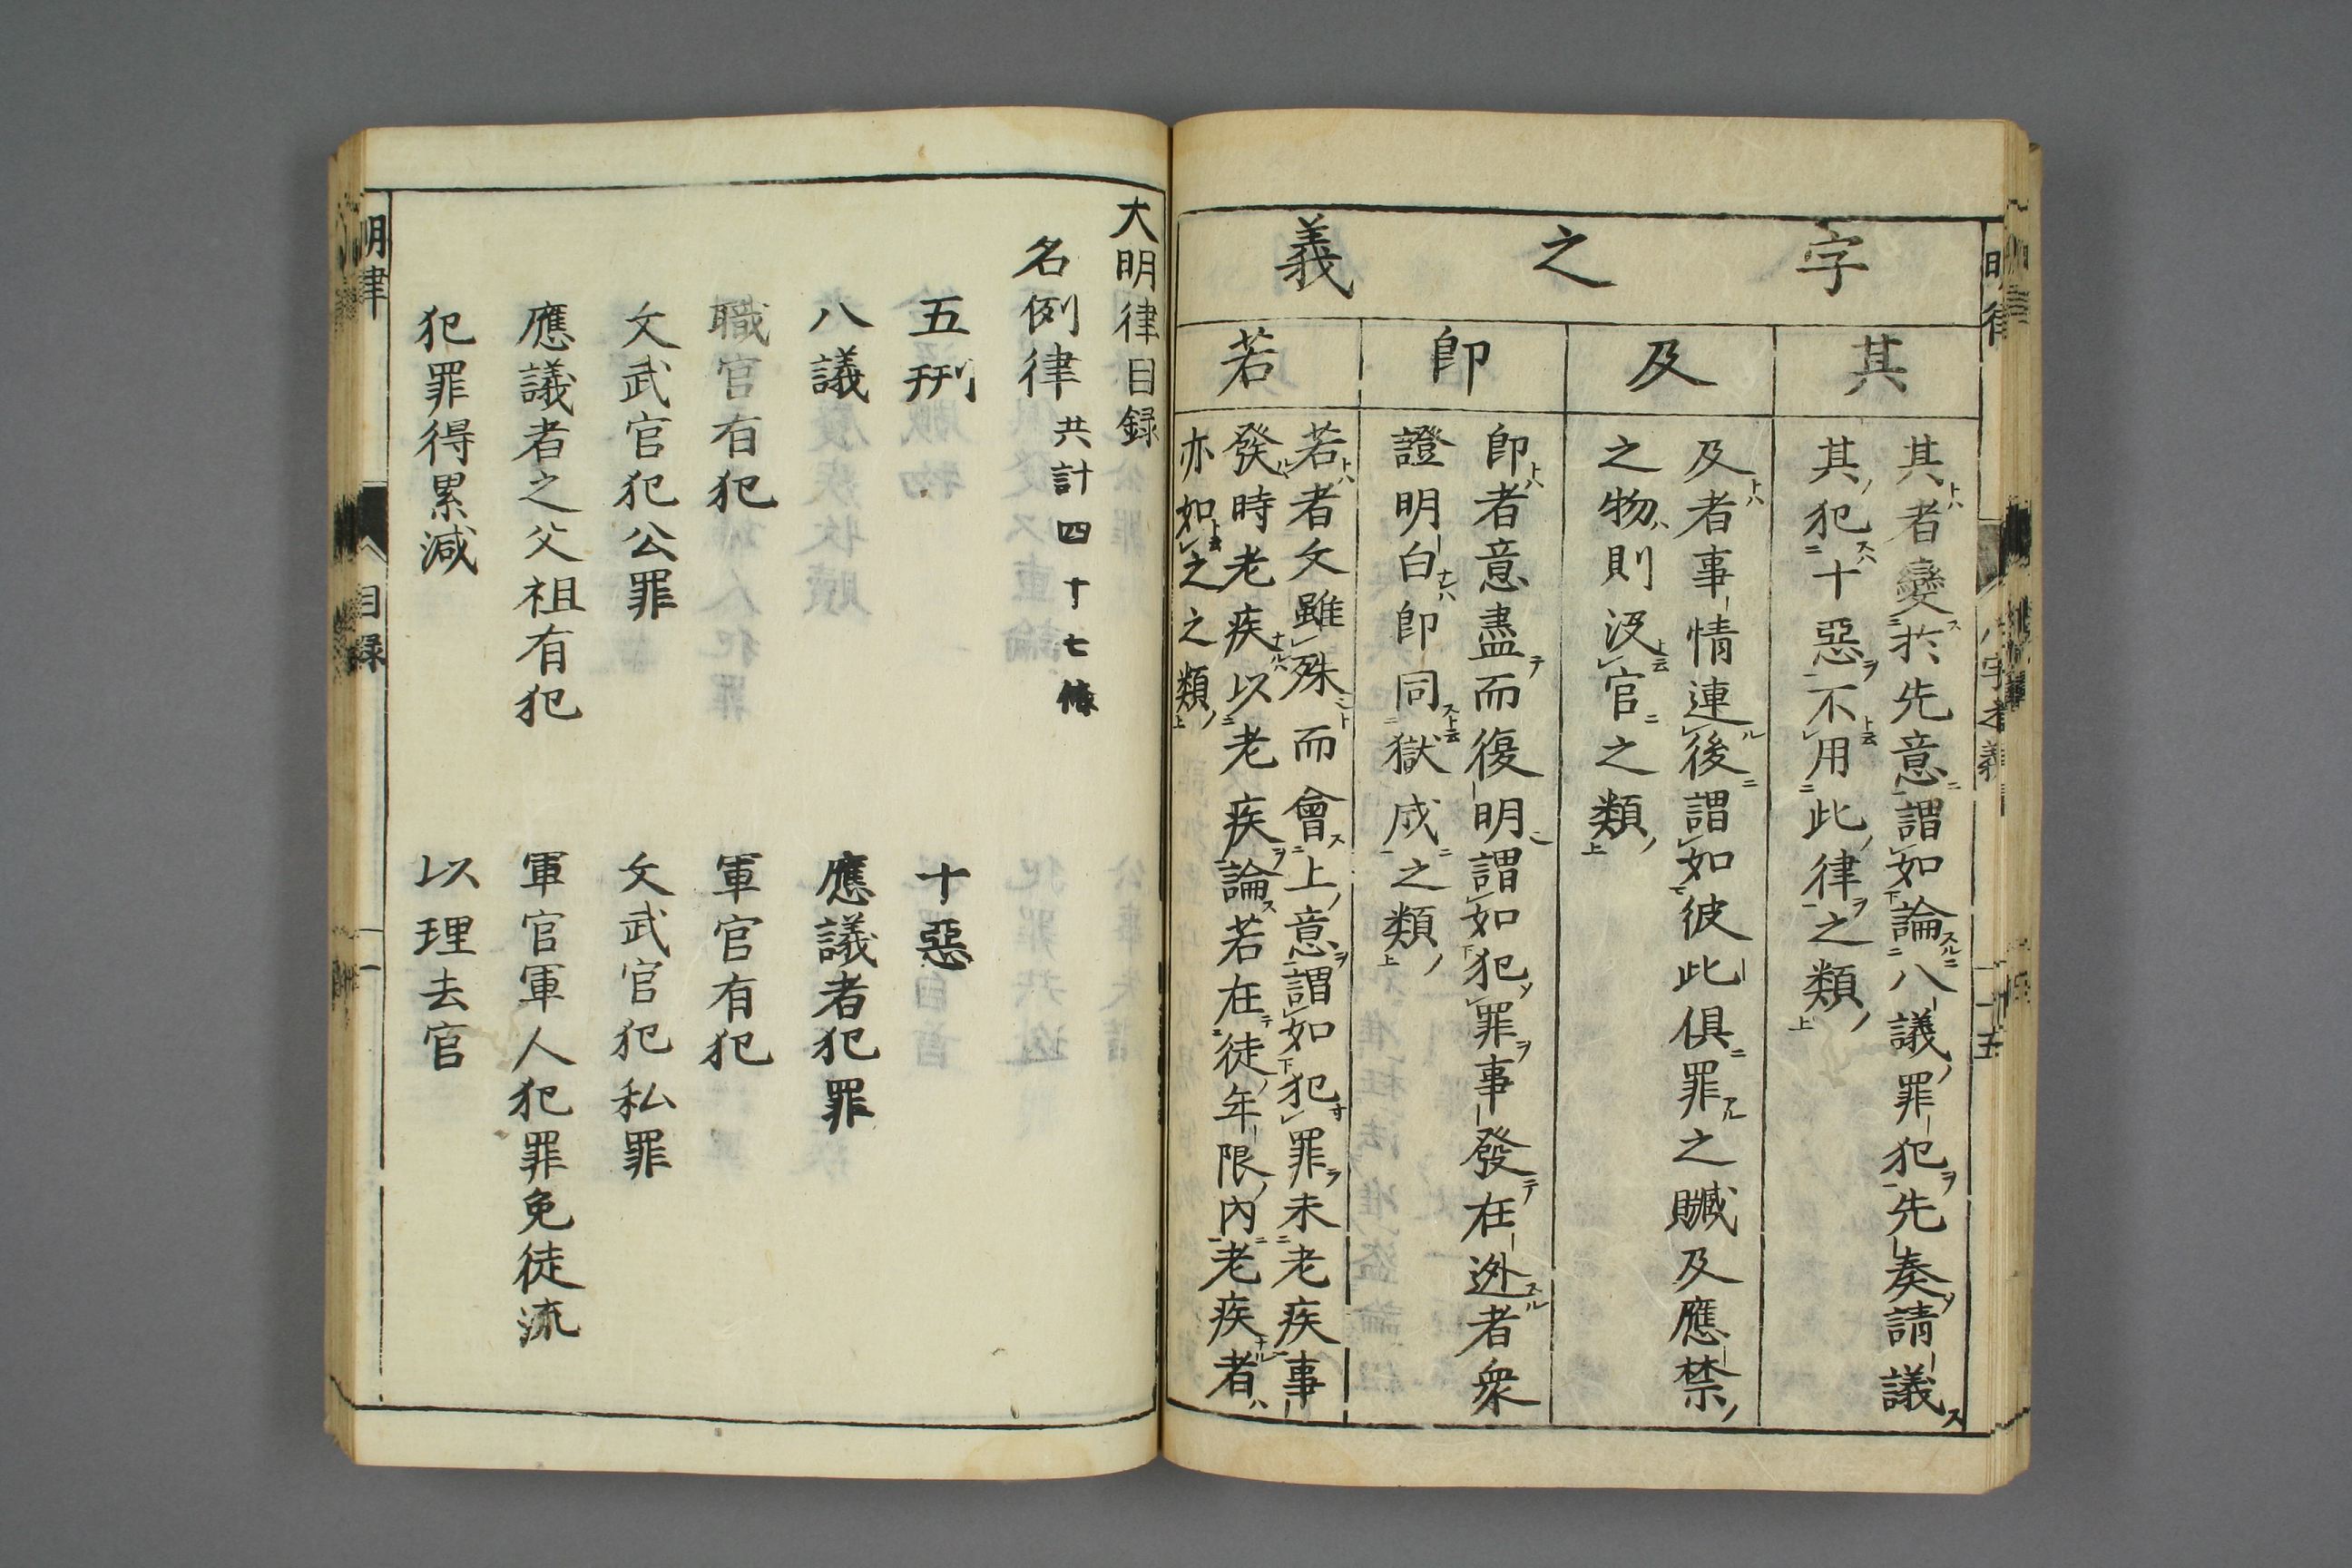 明律
八字之義
十五
字之義
其
其者變於先意謂如論八議罪犯先奏請議
其犯十惡不用此律之類
及
及者事情連後謂如彼此俱罪之贓及應禁
之物則沒官之類
即
即者意盡而復明謂如犯罪事發在逃者衆
證明白即同獄成之類
若
若者文雖殊而會上意謂如犯罪未老疾事
發時老疾以老疾論若在徒年限內老疾者
亦如之之類
大明律目録
名例律 共計四十七條
五刑 十惡
八議 應議者犯罪
職官有犯 軍官有犯
文武官犯公罪 文武官犯私罪
應議者之父祖有犯 軍官軍人犯罪免徒流
犯罪得累減 以理去官
明律
目録
一